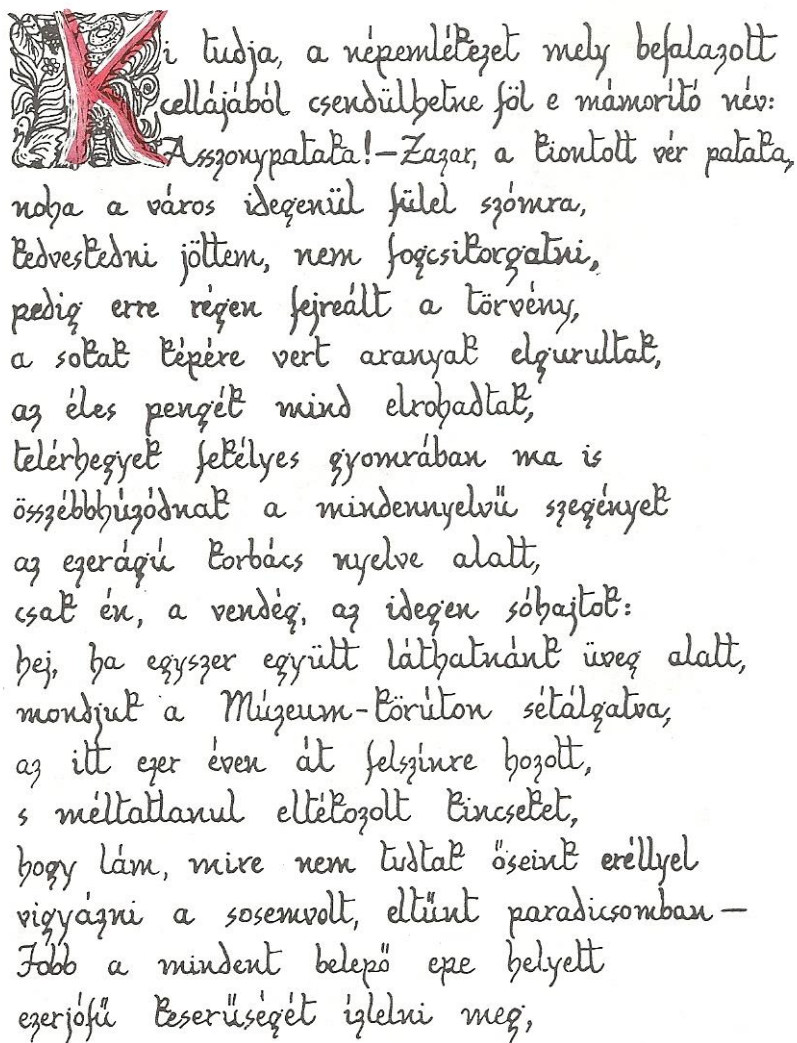 Ki tudja, a népemlékezet mely befalazott
cellájából csendülhetne föl e mámorító név:
Asszonypataka!—Zazar, a kiontott vér pataka,
noha a város idegenül fülel szómra,
kedveskedni jöttem, nem fogcsikorgatni,
pedig erre régen fejreállt a törvény,
a sokak képére vert aranyak elgurultak,
az éles pengék mind elrohadtak,
telérhegyek fekélyes gyomrában ma is
összébbhúzódnak a mindennyelvű szegények
az ezerágú korbács nyelve alatt,
csak én, a vendég, az idegen sóhajtok:
hej, ha egyszer együtt láthatnánk üveg alatt,
mondjuk a Múzeum-körúton sétálgatva,
az itt ezer éven át felszínre hozott,
s méltatlanul eltékozolt kincseket,
hogy lám, mire nem tudtak őseink eréllyel
vigyázni a sosemvolt, eltűnt paradicsomban—
Jobb a mindent belepő epe helyett
ezerjófű keserűségét ízlelni meg,